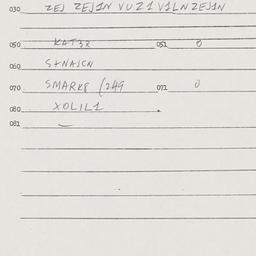 030 ZEJ ZEJ1N VUZ1V1LNZEJ1N
050 KAT3R 051 0
060 S+NAJCN
070 SMARK8 (249 071 0
080 XOLIL1
081 -